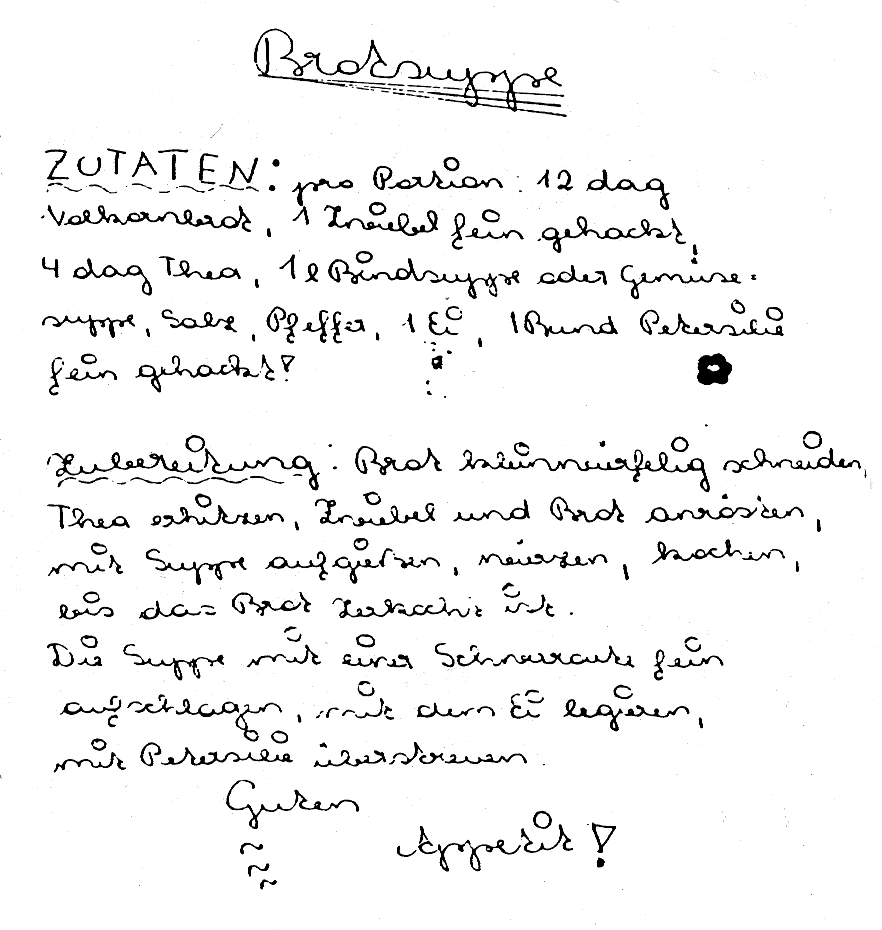 Brotsuppe
ZUTATEN: pro Portion: 12 dag
Vollkornbrot, 1 Zwiebel fein gehackt,
4 dag Thea, 1 l Rindsuppe oder Gemüse-
suppe, Salz, Pfeffer, 1 Ei, 1 Bund Petersilie
fein gehackt!
Zubereitung: Brot kleinwürfelig schneiden,
Thea erhitzen, Zwiebel und Brot anrösten,
mit Suppe aufgießen, würzen, kochen,
bis das Brot zerkocht ist.
Die Suppe mit einer Schneerute fein
aufschlagen, mit dem Ei legieren,
mit Petersilie überstreuen.
Guten
Appetit!